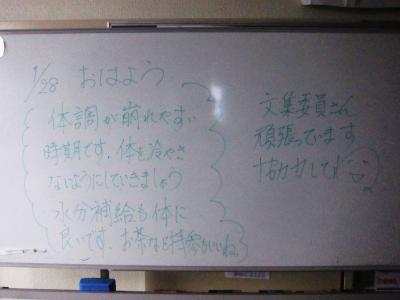 1/28 おはよう
体調が崩れやすい
時期です。体を冷やさ
ないようにしていきましょう
水分補給も体に
良いです。お茶など持参もいいね。
文集委員さん
頑張っています
協力してネ